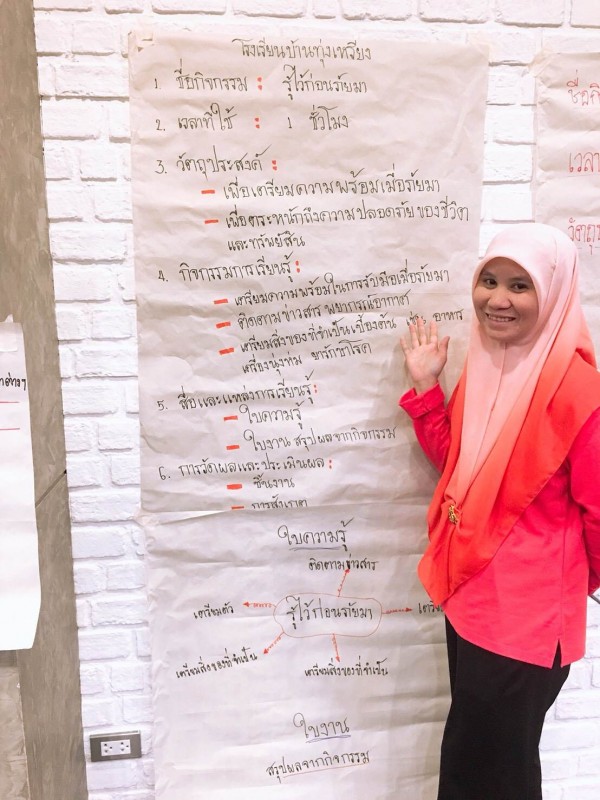 โรงเรียนบ้านทุ่งเหรียง
1. ชื่อกิจกรรม : รู้ไว้ก่อนภัยมา
2. เวลาที่ใช้ : 1 ชั่วโมง
3. วัตถุประสงค์ :
- เพื่อเตรียมความพร้อมเมื่อภัยมา
- เพื่อตระหนักถึงความปลอดภัยของชีวิต
และทรัพย์สิน
4. กิจกรรมการเรียนรู้ :
- เตรียมความพร้อมในการรับมือเมื่อภัยมา
- ติดตามข่าวสาร พยากรณ์อากาศ
- เตรียมสิ่งของที่จำเป็นเบื้องต้น เช่น อาหาร
เครื่องนุ่งห่ม ยารักษาโรค
5. สื่อและแหล่งการเรียนรู้ :
- ใบความรู้
- ใบงาน สรุปผลจากกิจกรรม
6. การวัดผลและประเมินผล :
- ชิ้นงาน
- การสังเกต
ใบความรู้
ติดตามข่าวสาร
เตรียมตัว
รู้ไว้ก่อนภัยมา
เตรียมสิ่งของที่จำเป็น
เตรียมสิ่งของที่จำเป็น
ใบงาน
สรุปผลจากกิจกรรม
ชื่อกิ
เวลา
วัตถุ